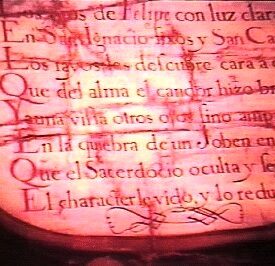 Los ojos de Felipe con luz clar
En San Ignacio fixos y San Ca
Los rayos les descubre cara a c
Que del alma el candor hizo br
Y a una vista otros ojos sino amp
En la quiebra de un Joben en
Que el Sacerdocio oculta y se
El character le vido, y lo redu